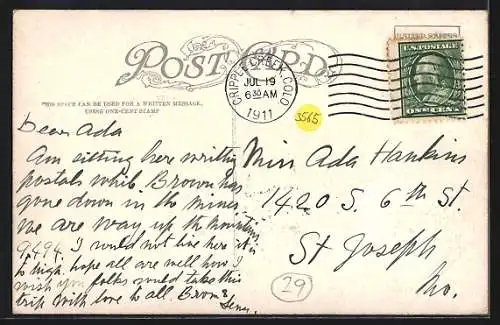 POST CARD
UNITED STATES
U.S. POSTAGE
ONE CENT
CRIPPLE CREEK, COLO
JUL 19
6 30 AM
1911
THIS SPACE CAN BE USED FOR A WRITTEN MESSAGE,
USING ONE-CENT STAMP
3565
Dear Ada
Am sitting here writing
postals while Brown has
gone down in the mines
we are way up the mountains
9,494. I would not live here it
to high. hope all are well how I
wish you folks could take this
trip with love to all. Brown &
Miss Ada Hankins
1420 S. 6th St.
St Joseph
Mo.
29